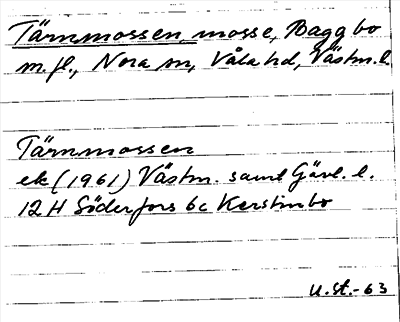 Tärnmossen, mosse, Baggbo
m.fl., Nora sn, Våla hd, Västm. l.
Tärnmossen
ek (1961) Västm. samt Gävl. l.
12 H Söderfors 6c Kerstinbo
U.St.-63